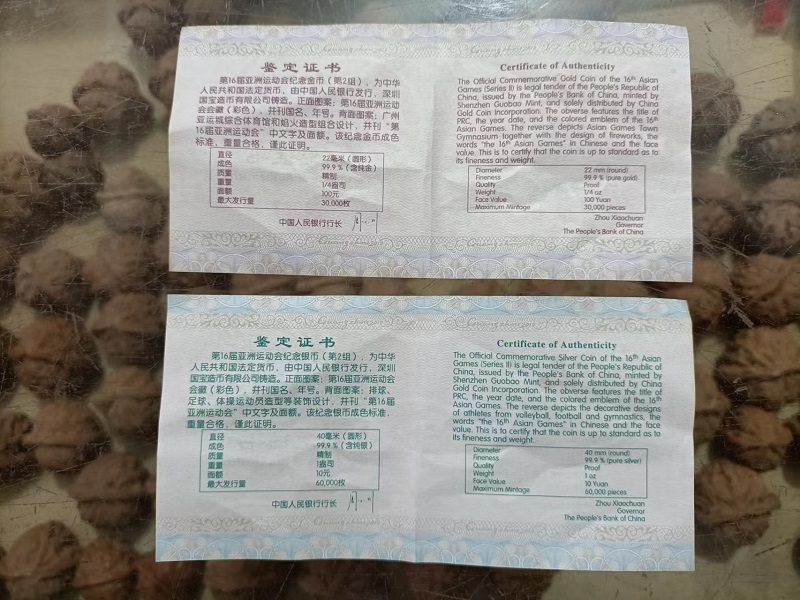 鉴定证书
第16届亚洲运动会纪念金币（第2组），为中华
人民共和国法定货币，由中国人民银行发行，深圳
国宝造币有限公司铸造。正面图案：第16届亚洲运动
会会徽（彩色），并刊国名、年号。背面图案：广州
亚运城综合体育馆和焰火造型组合设计，并刊“第
16届亚洲运动会”中文字及面额。该纪念金币成色
标准，重量合格，谨此证明。
直径 22毫米（圆形）
成色 99.9％（含纯金）
质量 精制
重量 1/4盎司
面额 100元
最大发行量 30,000枚
中国人民银行行长
Certificate of Authenticity
The Official Commemorative Gold Coin of the 16th Asian
Games (Series II) is legal tender of the People's Republic of
China, issued by the People's Bank of China, minted by
Shenzhen Guobao Mint, and solely distributed by China
Gold Coin Incorporation. The obverse features the title of
PRC, the year date, and the colored emblem of the 16th
Asian Games. The reverse depicts Asian Games Town
Gymnasium together with the design of fireworks, the
words "the 16th Asian Games" in Chinese and the face
value. This is to certify that the coin is up to standard as to
its fineness and weight.
Diameter 22 mm (round)
Fineness 99.9 % (pure gold)
Quality Proof
Weight 1/4 oz
Face Value 100 Yuan
Maximum Mintage 30,000 pieces
Zhou Xiaochuan
Governor
The People's Bank of China
鉴定证书
第16届亚洲运动会纪念银币（第2组），为中华
人民共和国法定货币，由中国人民银行发行，深圳
国宝造币有限公司铸造。正面图案：第16届亚洲运动会
会徽（彩色），并刊国名、年号。背面图案：排球、
足球、体操运动员造型等装饰设计，并刊“第16届
亚洲运动会”中文字及面额。该纪念银币成色标准，
重量合格，谨此证明。
直径 40毫米（圆形）
成色 99.9％（含纯银）
质量 精制
重量 1盎司
面额 10元
最大发行量 60,000枚
中国人民银行行长
Certificate of Authenticity
The Official Commemorative Silver Coin of the 16th Asian
Games (Series II) is legal tender of the People's Republic of
China, issued by the People's Bank of China, minted by
Shenzhen Guobao Mint, and solely distributed by China
Gold Coin Incorporation. The obverse features the title of
PRC, the year date, and the colored emblem of the 16th
Asian Games. The reverse depicts the decorative designs
of athletes from volleyball, football and gymnastics, the
words "the 16th Asian Games" in Chinese and the face
value. This is to certify that the coin is up to standard as to
its fineness and weight.
Diameter 40 mm (round)
Fineness 99.9 % (pure silver)
Quality Proof
Weight 1 oz
Face Value 10 Yuan
Maximum Mintage 60,000 pieces
Zhou Xiaochuan
Governor
The People's Bank of China